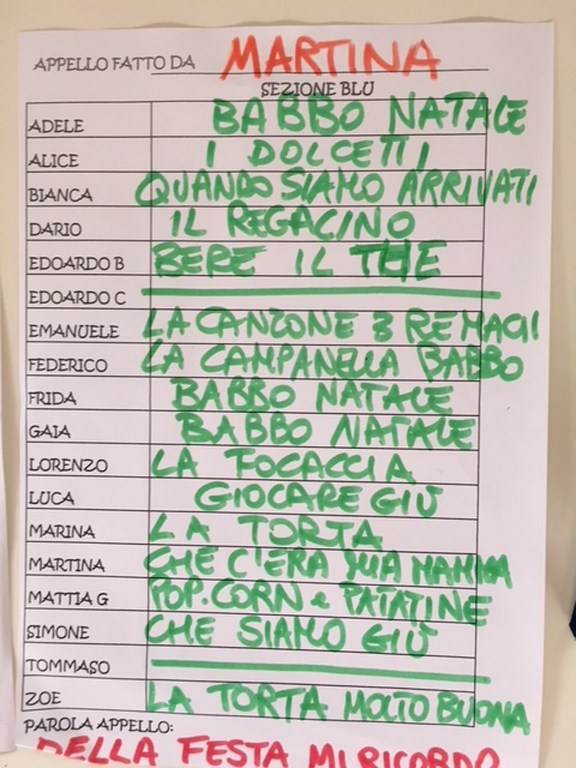 APPELLO FATTO DA MARTINA
SEZIONE BLU
ADELE BABBO NATALE
ALICE I DOLCETTI
BIANCA QUANDO SIAMO ARRIVATI
DARIO IL REGACINO
EDOARDO B BERE IL THE
EDOARDO C
EMANUELE LA CANZONE 3 RE MAGI
FEDERICO LA CAMPANELLA BABBO
FRIDA BABBO NATALE
GAIA BABBO NATALE
LORENZO LA FOCACCIA
LUCA GIOCARE GIÙ
MARINA LA TORTA
MARTINA CHE C'ERA MIA MAMMA
MATTIA G POP.CORN e PATATINE
SIMONE CHE SIAMO GIÙ
TOMMASO
ZOE LA TORTA MOLTO BUONA
PAROLA APPELLO:
DELLA FESTA MI RICORDO